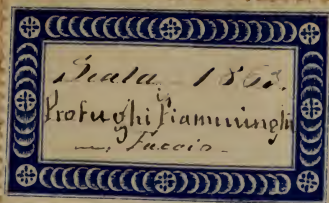 Scala, 1863.
Profughi Fiamminghi
Faccio.